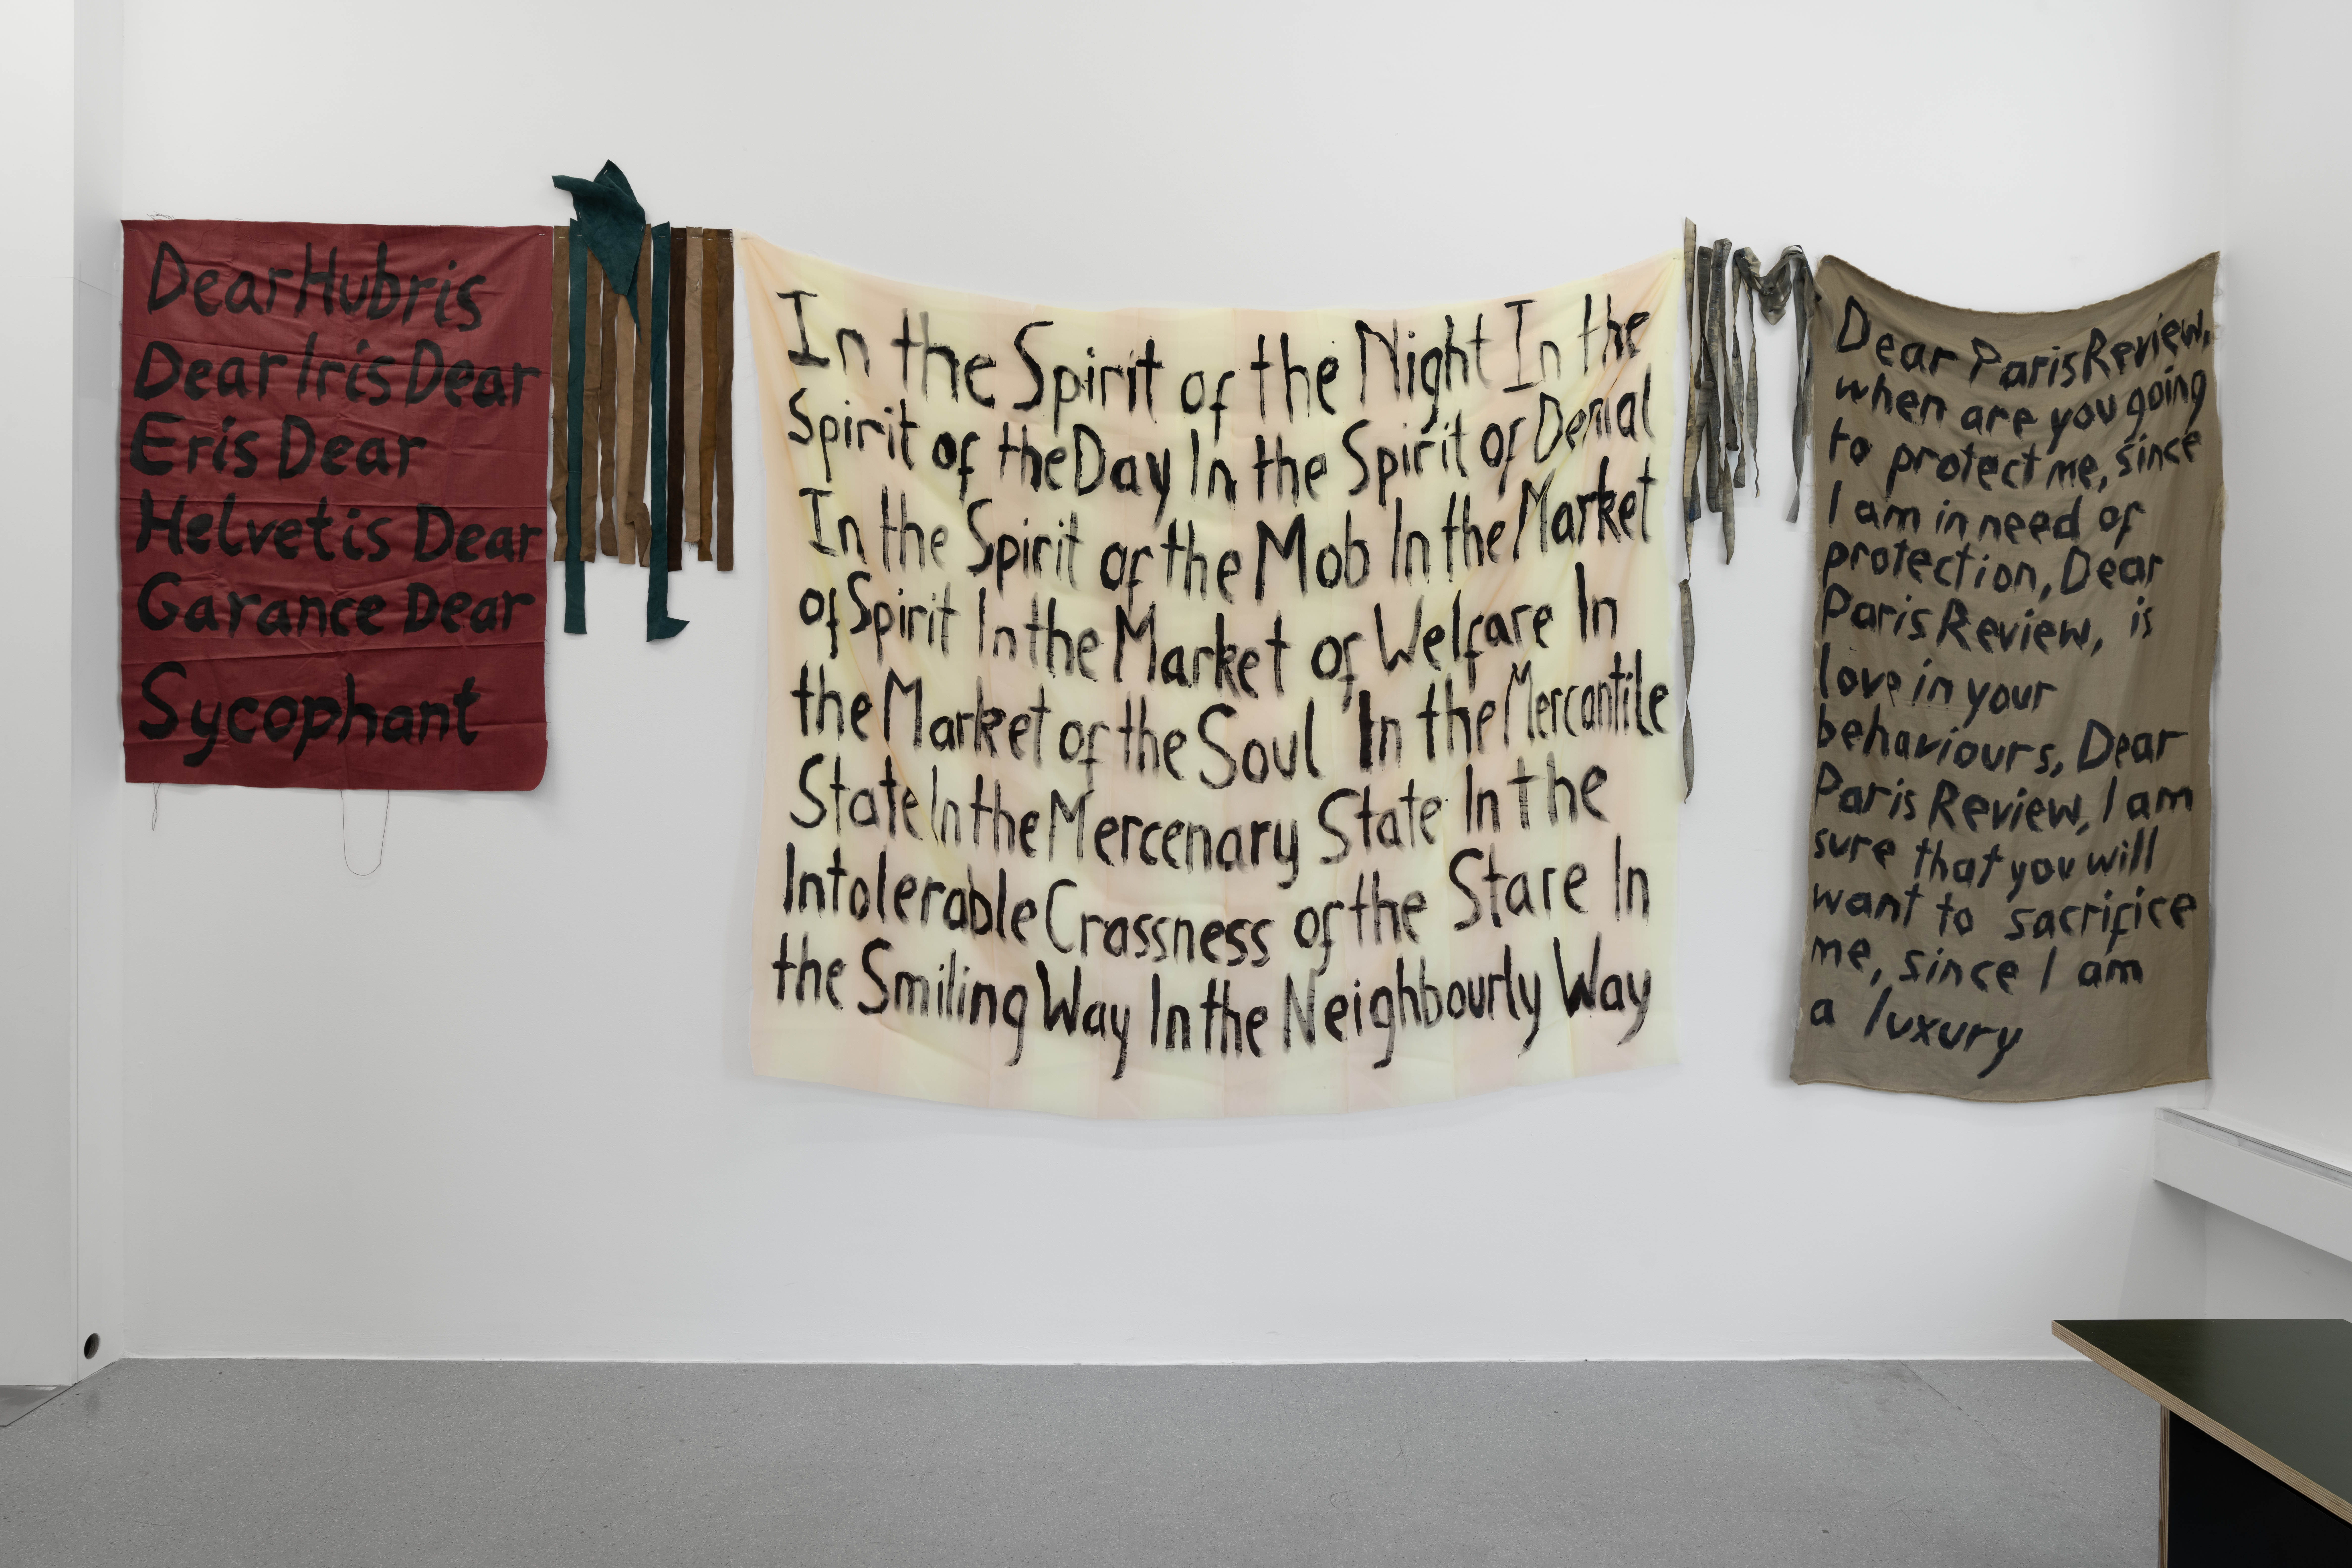 Dear Hubris
Dear Iris Dear
Eris Dear
Helvetis Dear
Garance Dear
Sycophant
In the Spirit of the Night In the
Spirit of the Day In the Spirit of Denial
In the Spirit of the Mob In the Market
of Spirit In the Market of Welfare In
the Market of the Soul In the Mercantile
State In the Mercenary State In the
Intolerable Crassness of the Stare In
the Smiling Way In the Neighbourly Way
Dear Paris Review,
when are you going
to protect me, since
I am in need of
protection, Dear
Paris Review, is
love in your
behaviours, Dear
Paris Review, I am
sure that you will
want to sacrifice
me, since I am
a luxury